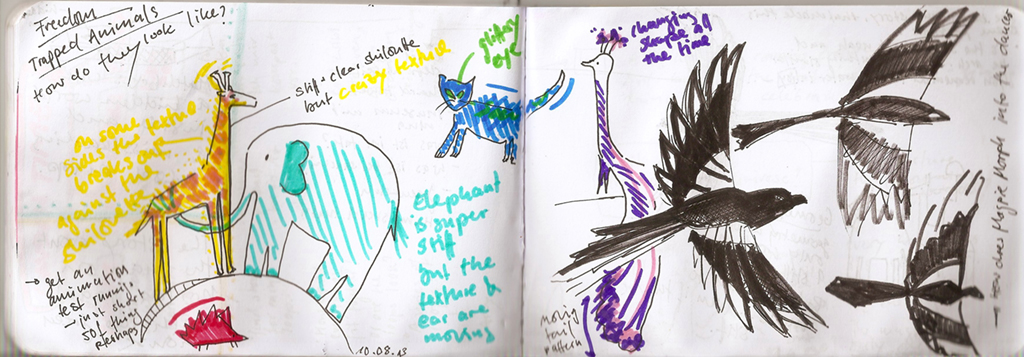 Freedom
Trapped Animals
How do they look like?
stiff + clear shilouette
but crazy texture
on some
sides the texture
breaks out
against the
shilouette
→ get an
animation
test running
- just short
perhaps
glittery
eye
elephant
is super
stiff
but the
texture &
ear are
moving
10.08.13
changing
shape all
the time
moving
tail
pattern
→ how does Magpie Morph into the dancer